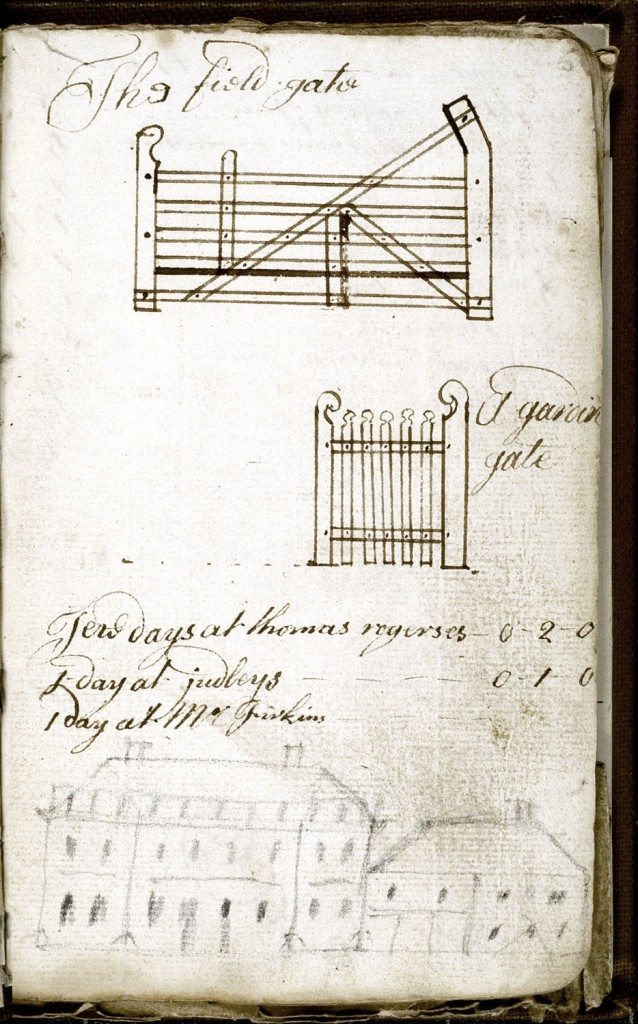 The field gate
A gardin
gate
days at thomas rogerses - 0 - 2 - 0
1 day at judleys - - - - 0 - 1 0
1 day at Mr